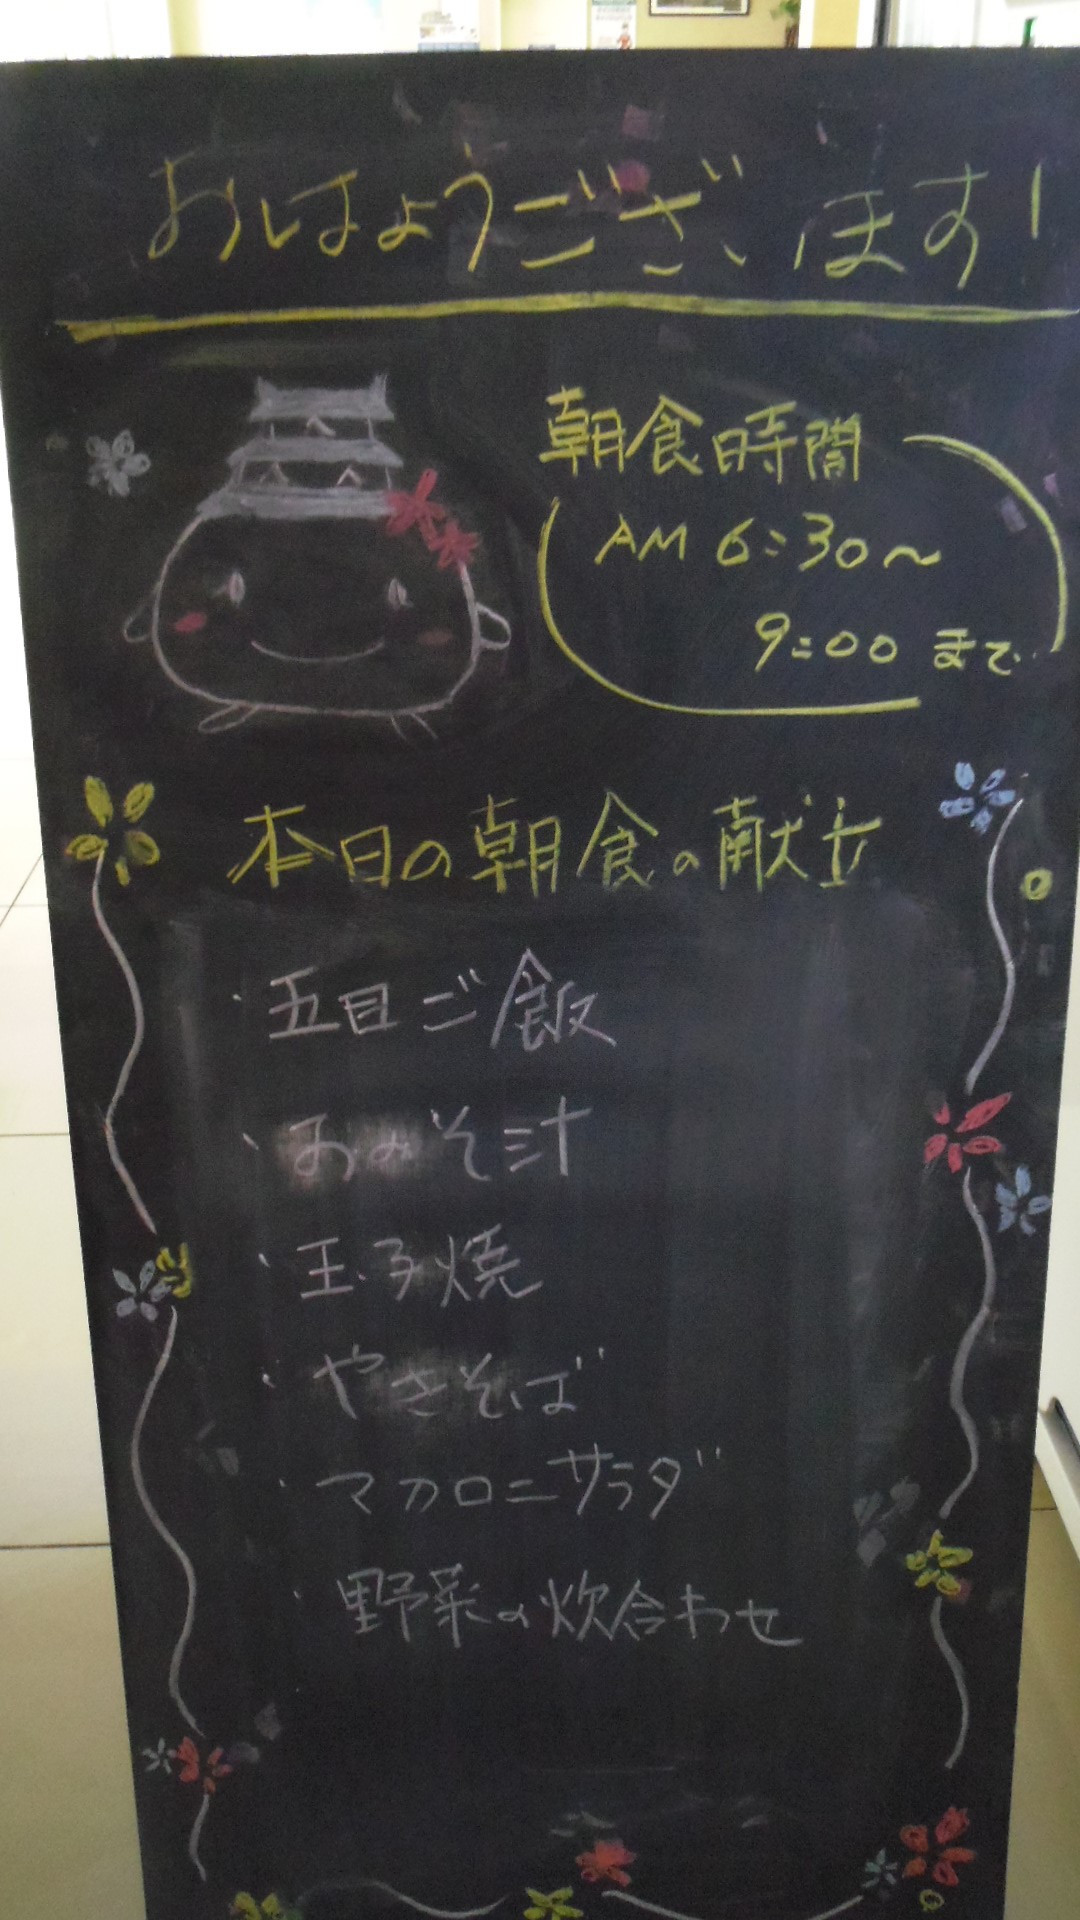 おはようございます!
朝食時間
AM 6:30～
9:00 まで
本日の朝食の献立
・五目ご飯
・おみそ汁
・玉子焼
・やきそば
・マカロニサラダ
・野菜の炊合わせ